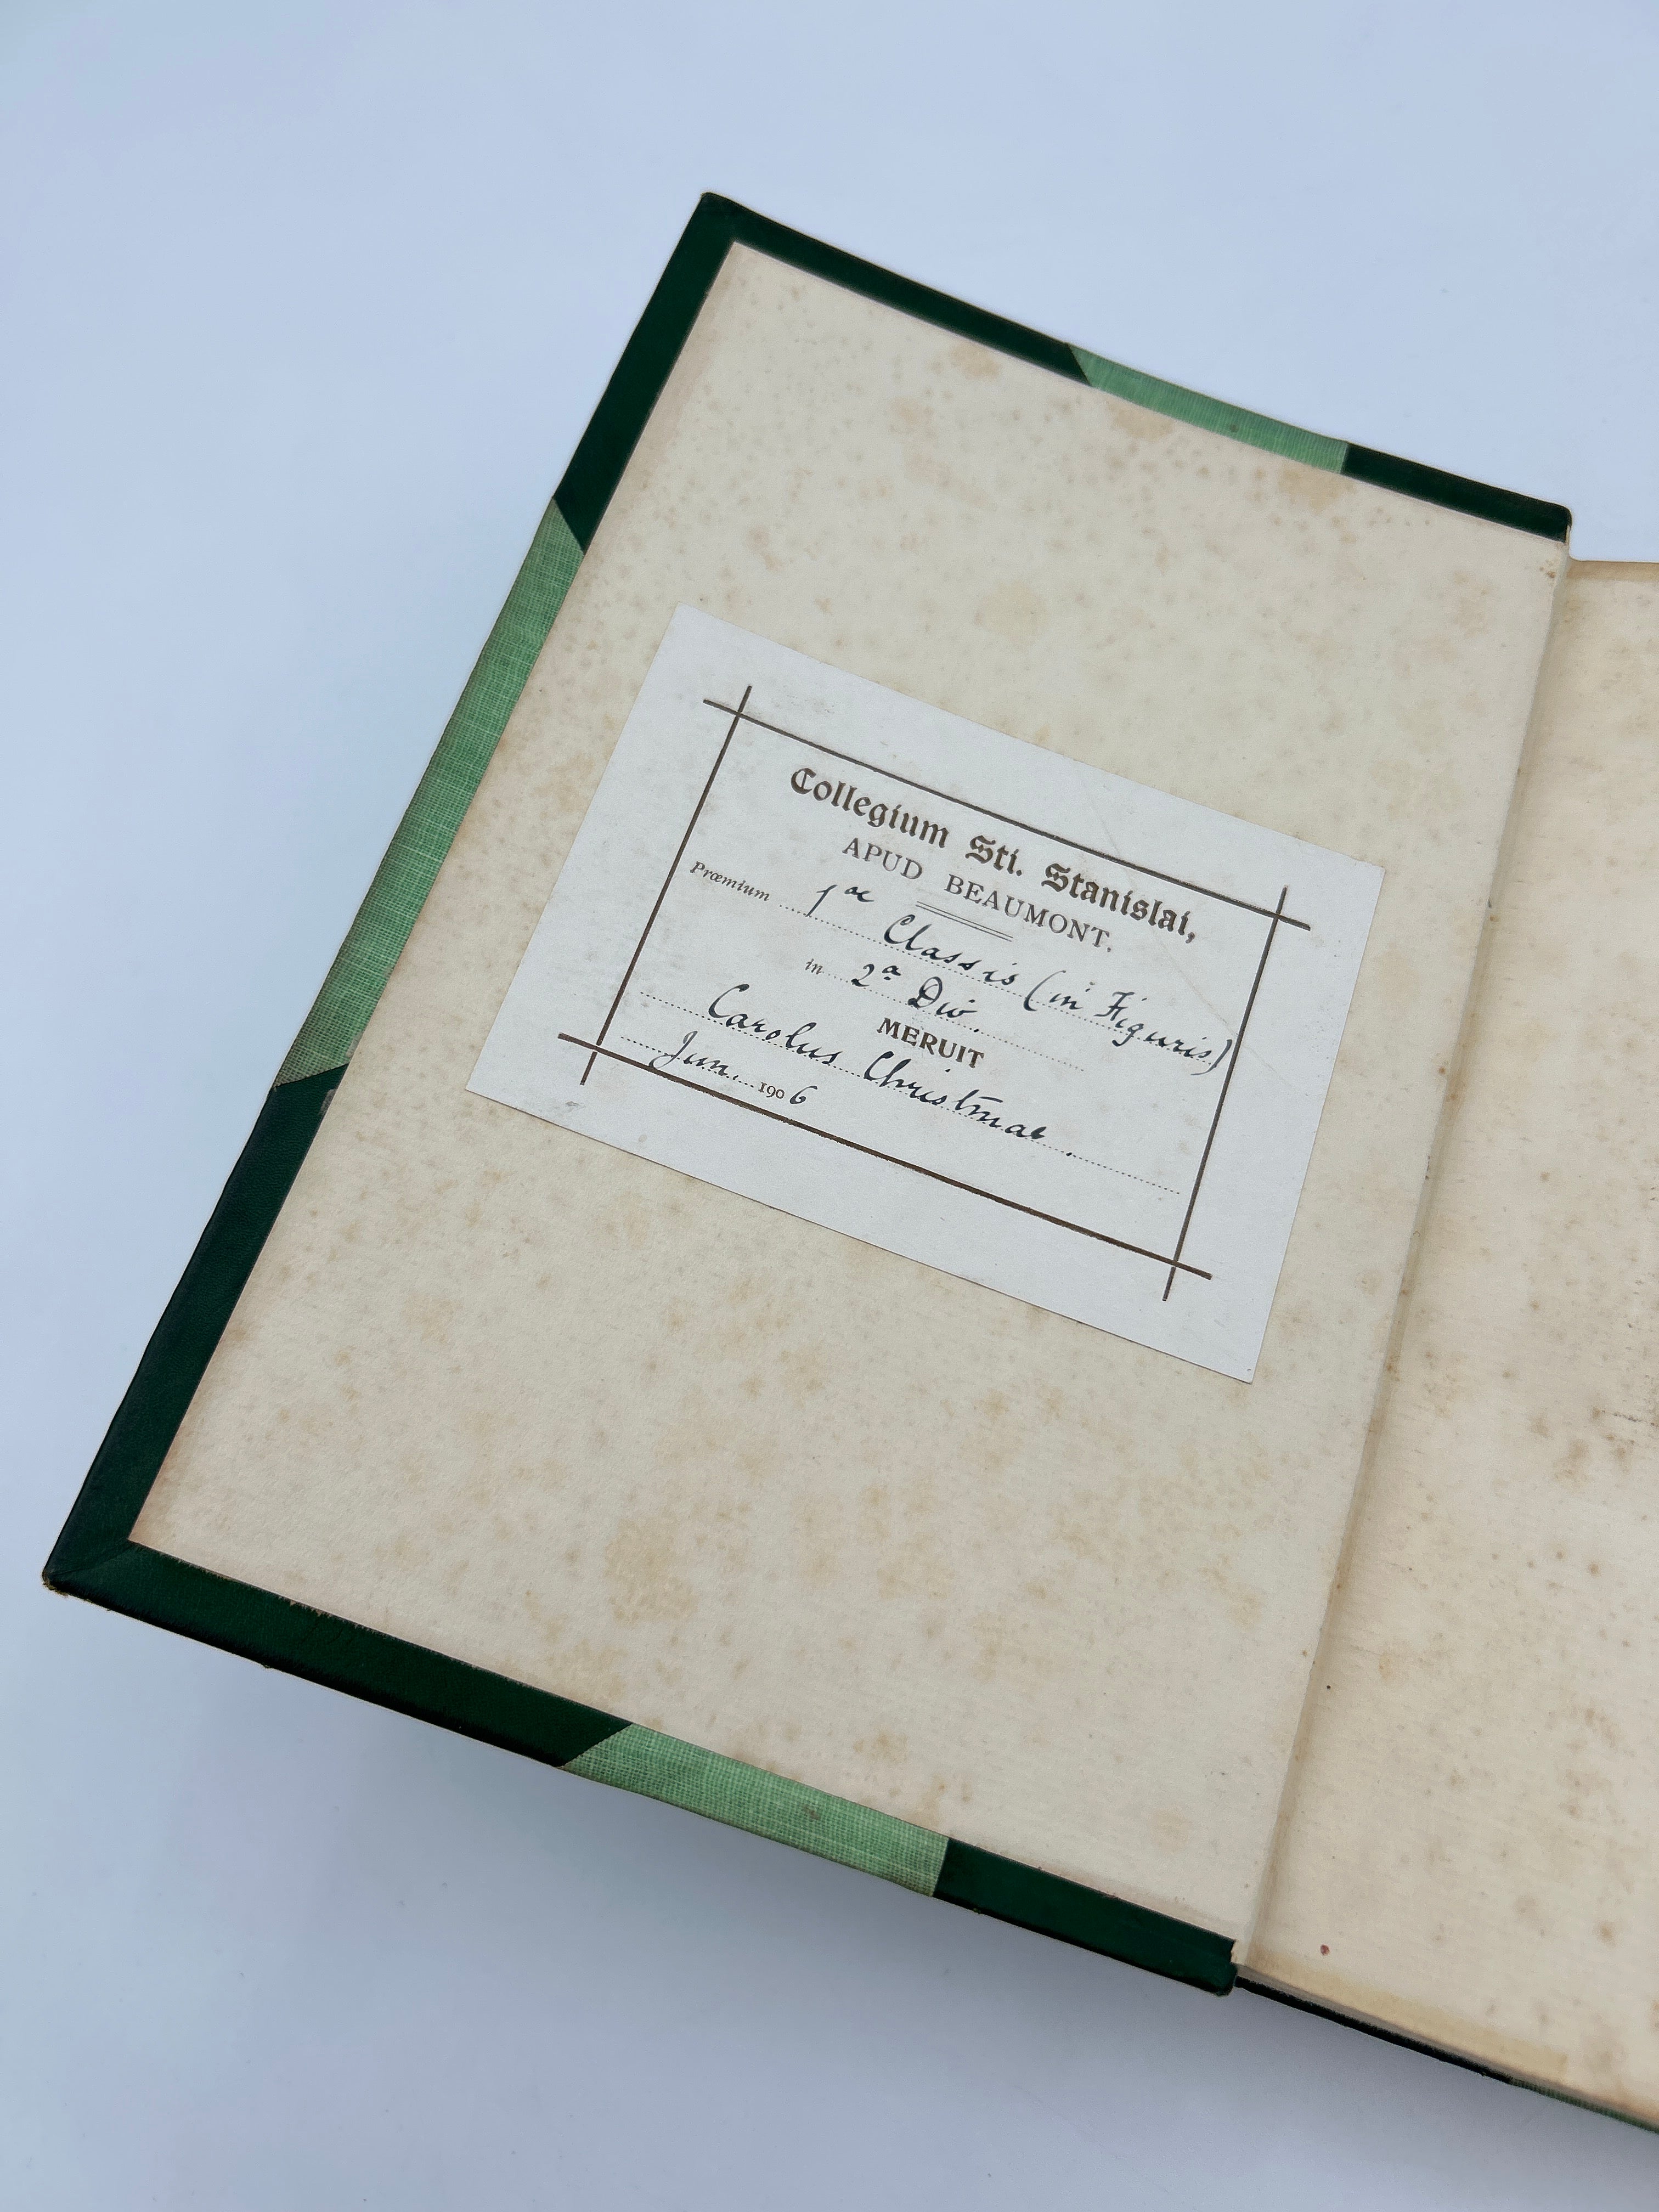 Collegium Sti. Stanislai,
APUD BEAUMONT.
Præmium 1ae
Classis (in Figuris)
in 2a Div.
MERUIT
Carolus Christmas.
Jun. 1906